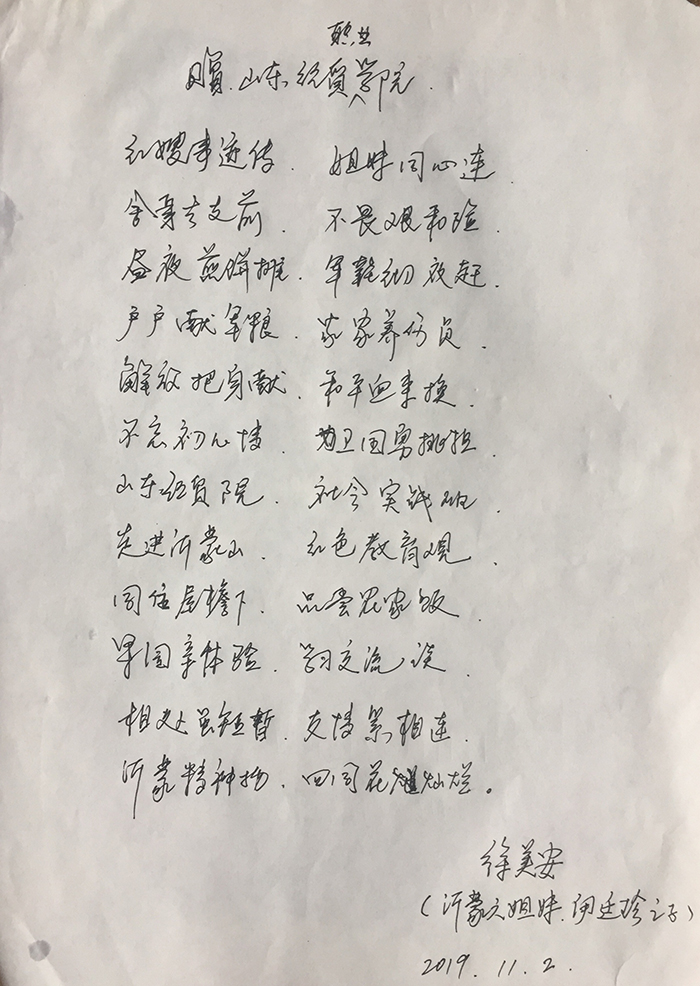 职业
贈.山东经贸学院.
红嫂事迹传. 姐妹同心连.
舍身去支前. 不畏艰和险.
昼夜煎饼摊. 军鞋彻夜赶.
户户献军粮. 家家养伤员.
解放把身献. 和平血来换.
不忘初心情. 为卫国勇挑担.
山东经贸院. 社会实践班.
走进沂蒙山. 红色教育观.
同住屋檐下. 品尝农家饭.
果园亲体验. 学习交流谈.
相处虽短暂. 友情紧相连.
沂蒙精神扬. 四同花灿烂。
徐美安
(沂蒙六姐妹.伊廷珍之子)
2019. 11. 2.